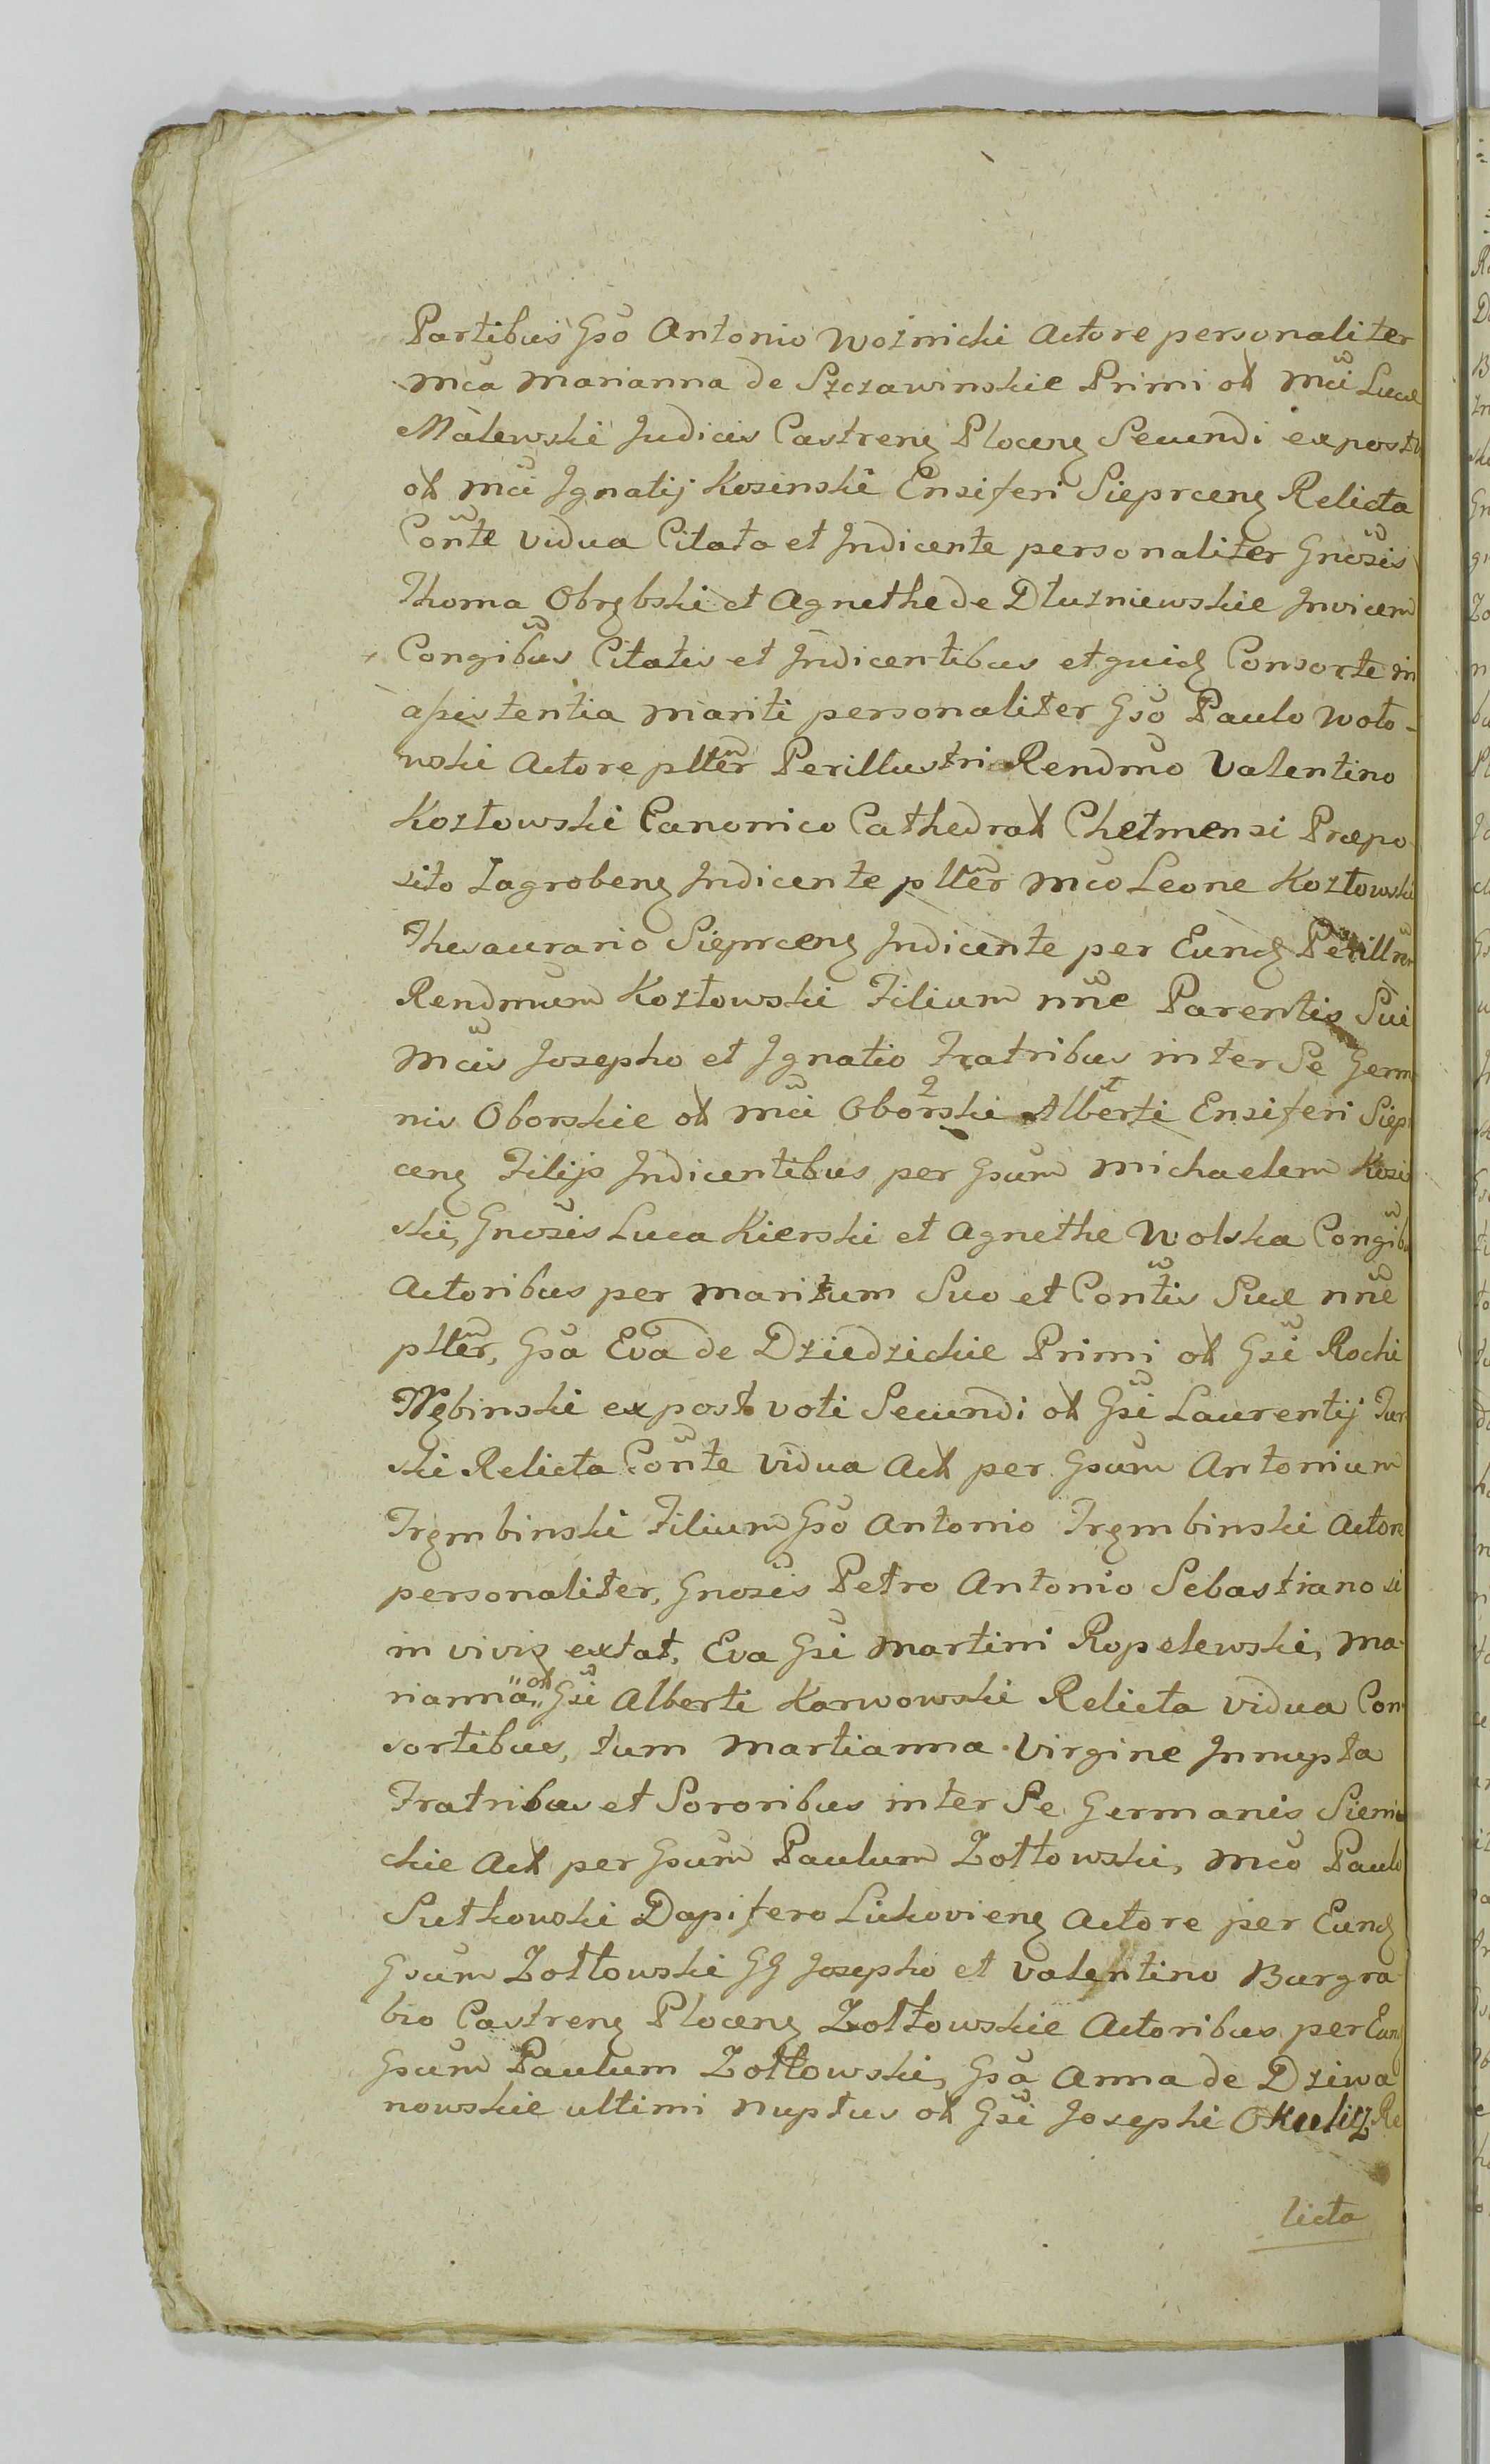 Partibus Gso Antonio Woźnicki Actore personaliter
Mca Marianna de Szczawinskie Primi ol Mci Lucæ
Malewski Judicis Castrenꝫ Plocenꝫ Secundi expost
ol Mci Ignatij Kosinski Ensiferi Sieprcenꝫ Relicta
Conte vidua Citata et Indicente personaliter Gnosis
Thoma Obrębski et Agnethe de Dłuzniewskie Invicem
Congibus Citatis et Indicentibus et quidꝫ Consorte in
assistentia Mariti personaliter Gso Paulo Woło-
wski Actore plter Perillustri Rendmo Valentino
Kozłowski Canonico Cathedral Chełmensi Præpo
sito Zagrobenꝫ Indicente plter Mco Leone Kozłowski
Thesaurario Sieprcenꝫ Indicente per Eundꝫ Perillrem
Rendmum Kozłowski Filium nne Parentis Sui
Mcis Josepho et Ignatio Fratribus inter Se Germa
nis Oborskie ol Mci Oborski Alberti Ensiferi Siepr
cenꝫ Filijs Indicentibus per Gsum Michaelem Kosi
ski, Gnosis Luca Kierski et Agnethe Wolska Congibu
Actoribus per Maritum Suo et Contis Suæ nne
plter, Gsa Eva de Dziedzickie Primi ol Gsi Rochi
Trębinski expost voti Secundi ol Gsi Laurentij Tur
ski Relicta Conte Vidua Act per Gsum Antonium
Trembinski Filium Gso Antonio Trembinski Actore
personaliter, Gnosis Petro Antonio Sebastiano si
in vivis extat, Eva Gsi Martini Ropelewski, Ma-
rianna ol Gsi Alberti Karwowski Relicta vidua Con-
sortibus, tum Martianna Virgine Innupta
Fratribus et Sororibus inter Se Germanis Siemi
ckie Act per Gsum Paulum Zołtowski, Mco Paulo
Sutkowski Dapifero Likovienꝫ Actore per Eundꝫ
Gsum Zołtowski GG Josepho et Valentino Burgra
bio Castrenꝫ Plocenꝫ Zołtowskie Actoribus per Eundꝫ
Gsum Paulum Zołtowski, Gsa Anna de Dziwa
nowskie ultimi nuptus ol Gsi Josephi Okulicz Re
licta